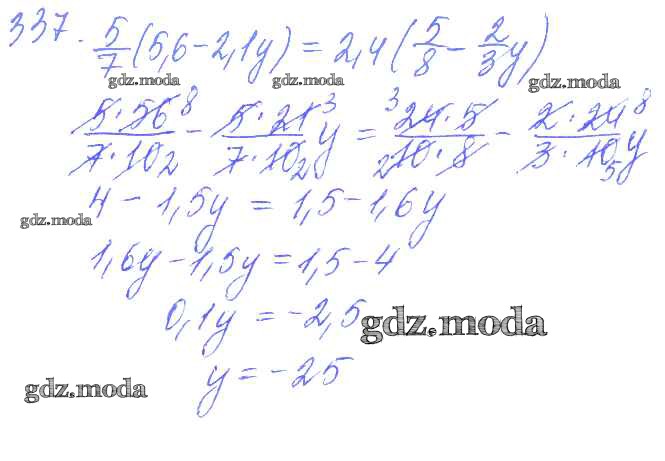 337. 5/7 (5,6 - 2,1y) = 2,4 (5/8 - 2/3 y)
gdz.moda gdz.moda gdz.moda
5·56 8 / 7·10 2 - 5·21 3 / 7·10 2 y = 3 24·5 / 2 10·8 - 2·24 8 / 3·10 5 y
4 - 1,5y = 1,5 - 1,6y
gdz.moda
1,6y - 1,5y = 1,5 - 4
0,1y = -2,5
gdz.moda
y = -25
gdz.moda